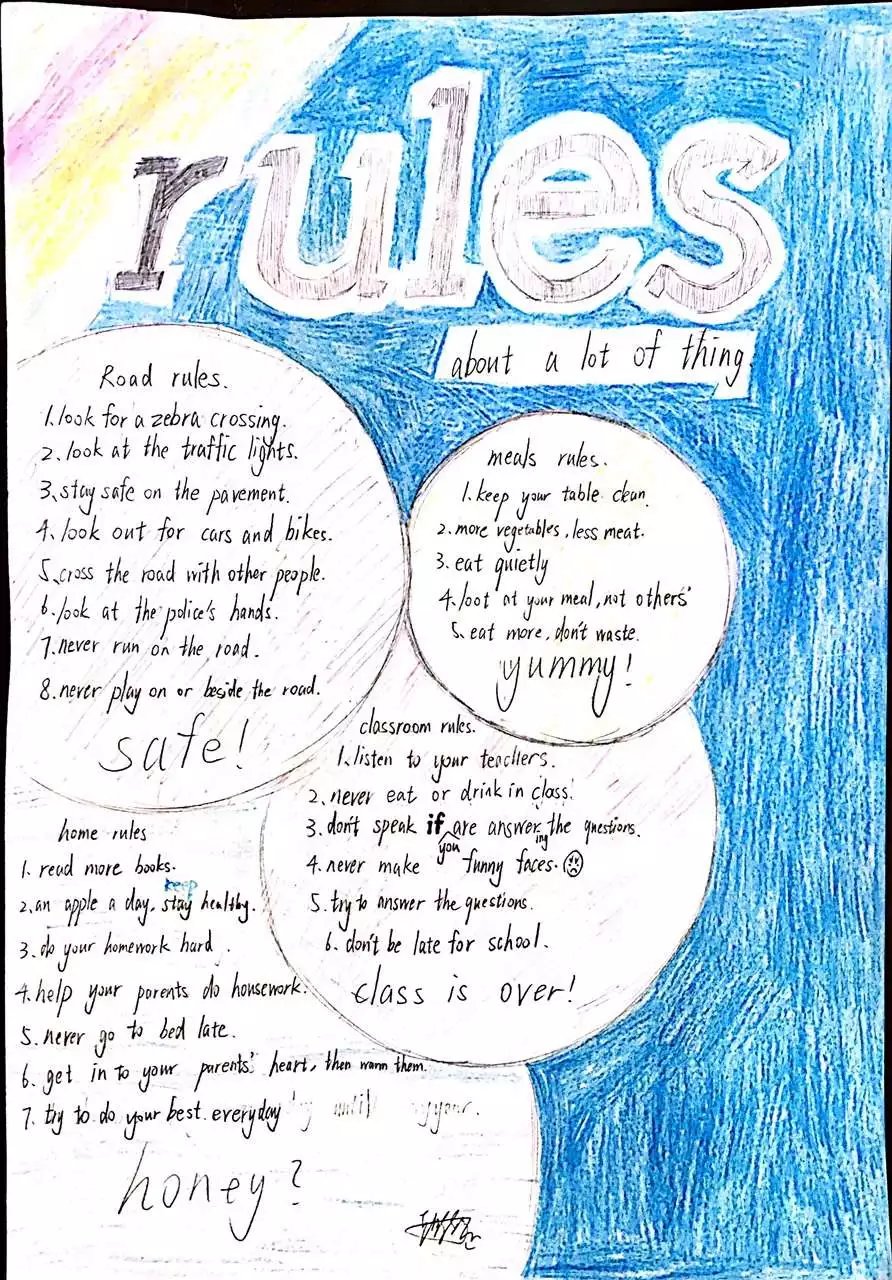 rules
about a lot of thing
Road rules.
1. look for a zebra crossing.
2. look at the traffic lights.
3. stay safe on the pavement.
4. look out for cars and bikes.
5. cross the road with other people.
6. look at the police's hands.
7. never run on the road.
8. never play on or beside the road.
safe!
meals rules.
1. keep your table clean.
2. more vegetables, less meat.
3. eat quietly
4. loot at your meal, not others'
5. eat more, don't waste.
yummy!
classroom rules.
1. listen to your teachers.
2. never eat or drink in class.
3. don't speak if you are answering the questions.
4. never make funny faces.
5. try to answer the questions.
6. don't be late for school.
class is over!
home rules
1. read more books.
2. an apple a day, keep stay healthy.
3. do your homework hard.
4. help your parents do housework.
5. never go to bed late.
6. get in to your parents' heart, then warm them.
7. try to do your best everyday
honey?